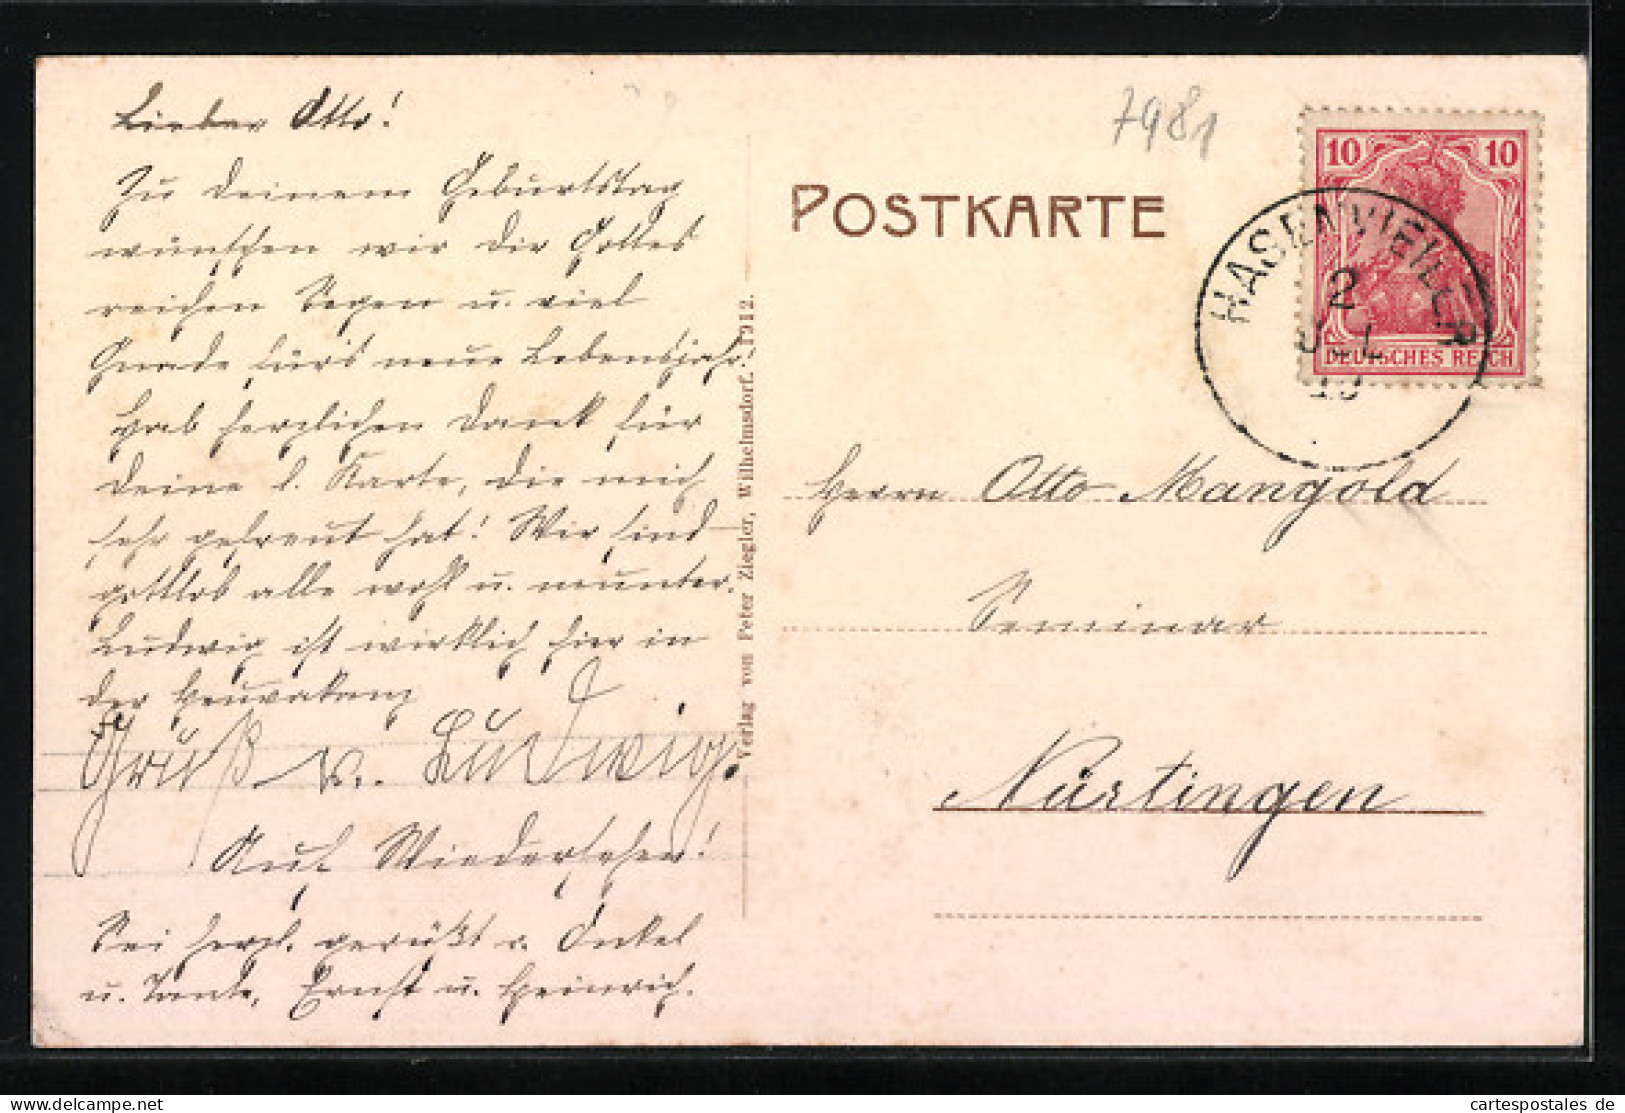 Lieber Otto!
Zu deinem Geburtstag
wünschen wir dir Gottes
reichen Segen u. viel
Gnade fürs neue Lebensjahr!
Hab herzlichen Dank für
deine l. Karte, die mich
sehr gefreut hat! Wir sind
gottlob alle wohl u. munter.
Ludwig ist wirklich hier in
der Heuvakanz
Gruß v. Ludwig.
Auf Wiedersehen!
Sei herzl. gegrüßt v. Onkel
u. Tante, Ernst u. Heinrich.
Verlag von Peter Ziegler, Wilhelmsdorf. 1912.
7981
POSTKARTE
10 10
DEUTSCHES REICH
HASENWEILER
2
JUL
Herrn Otto Mangold
Seminar
Nürtingen
www.delcampe.net
cartespostales de